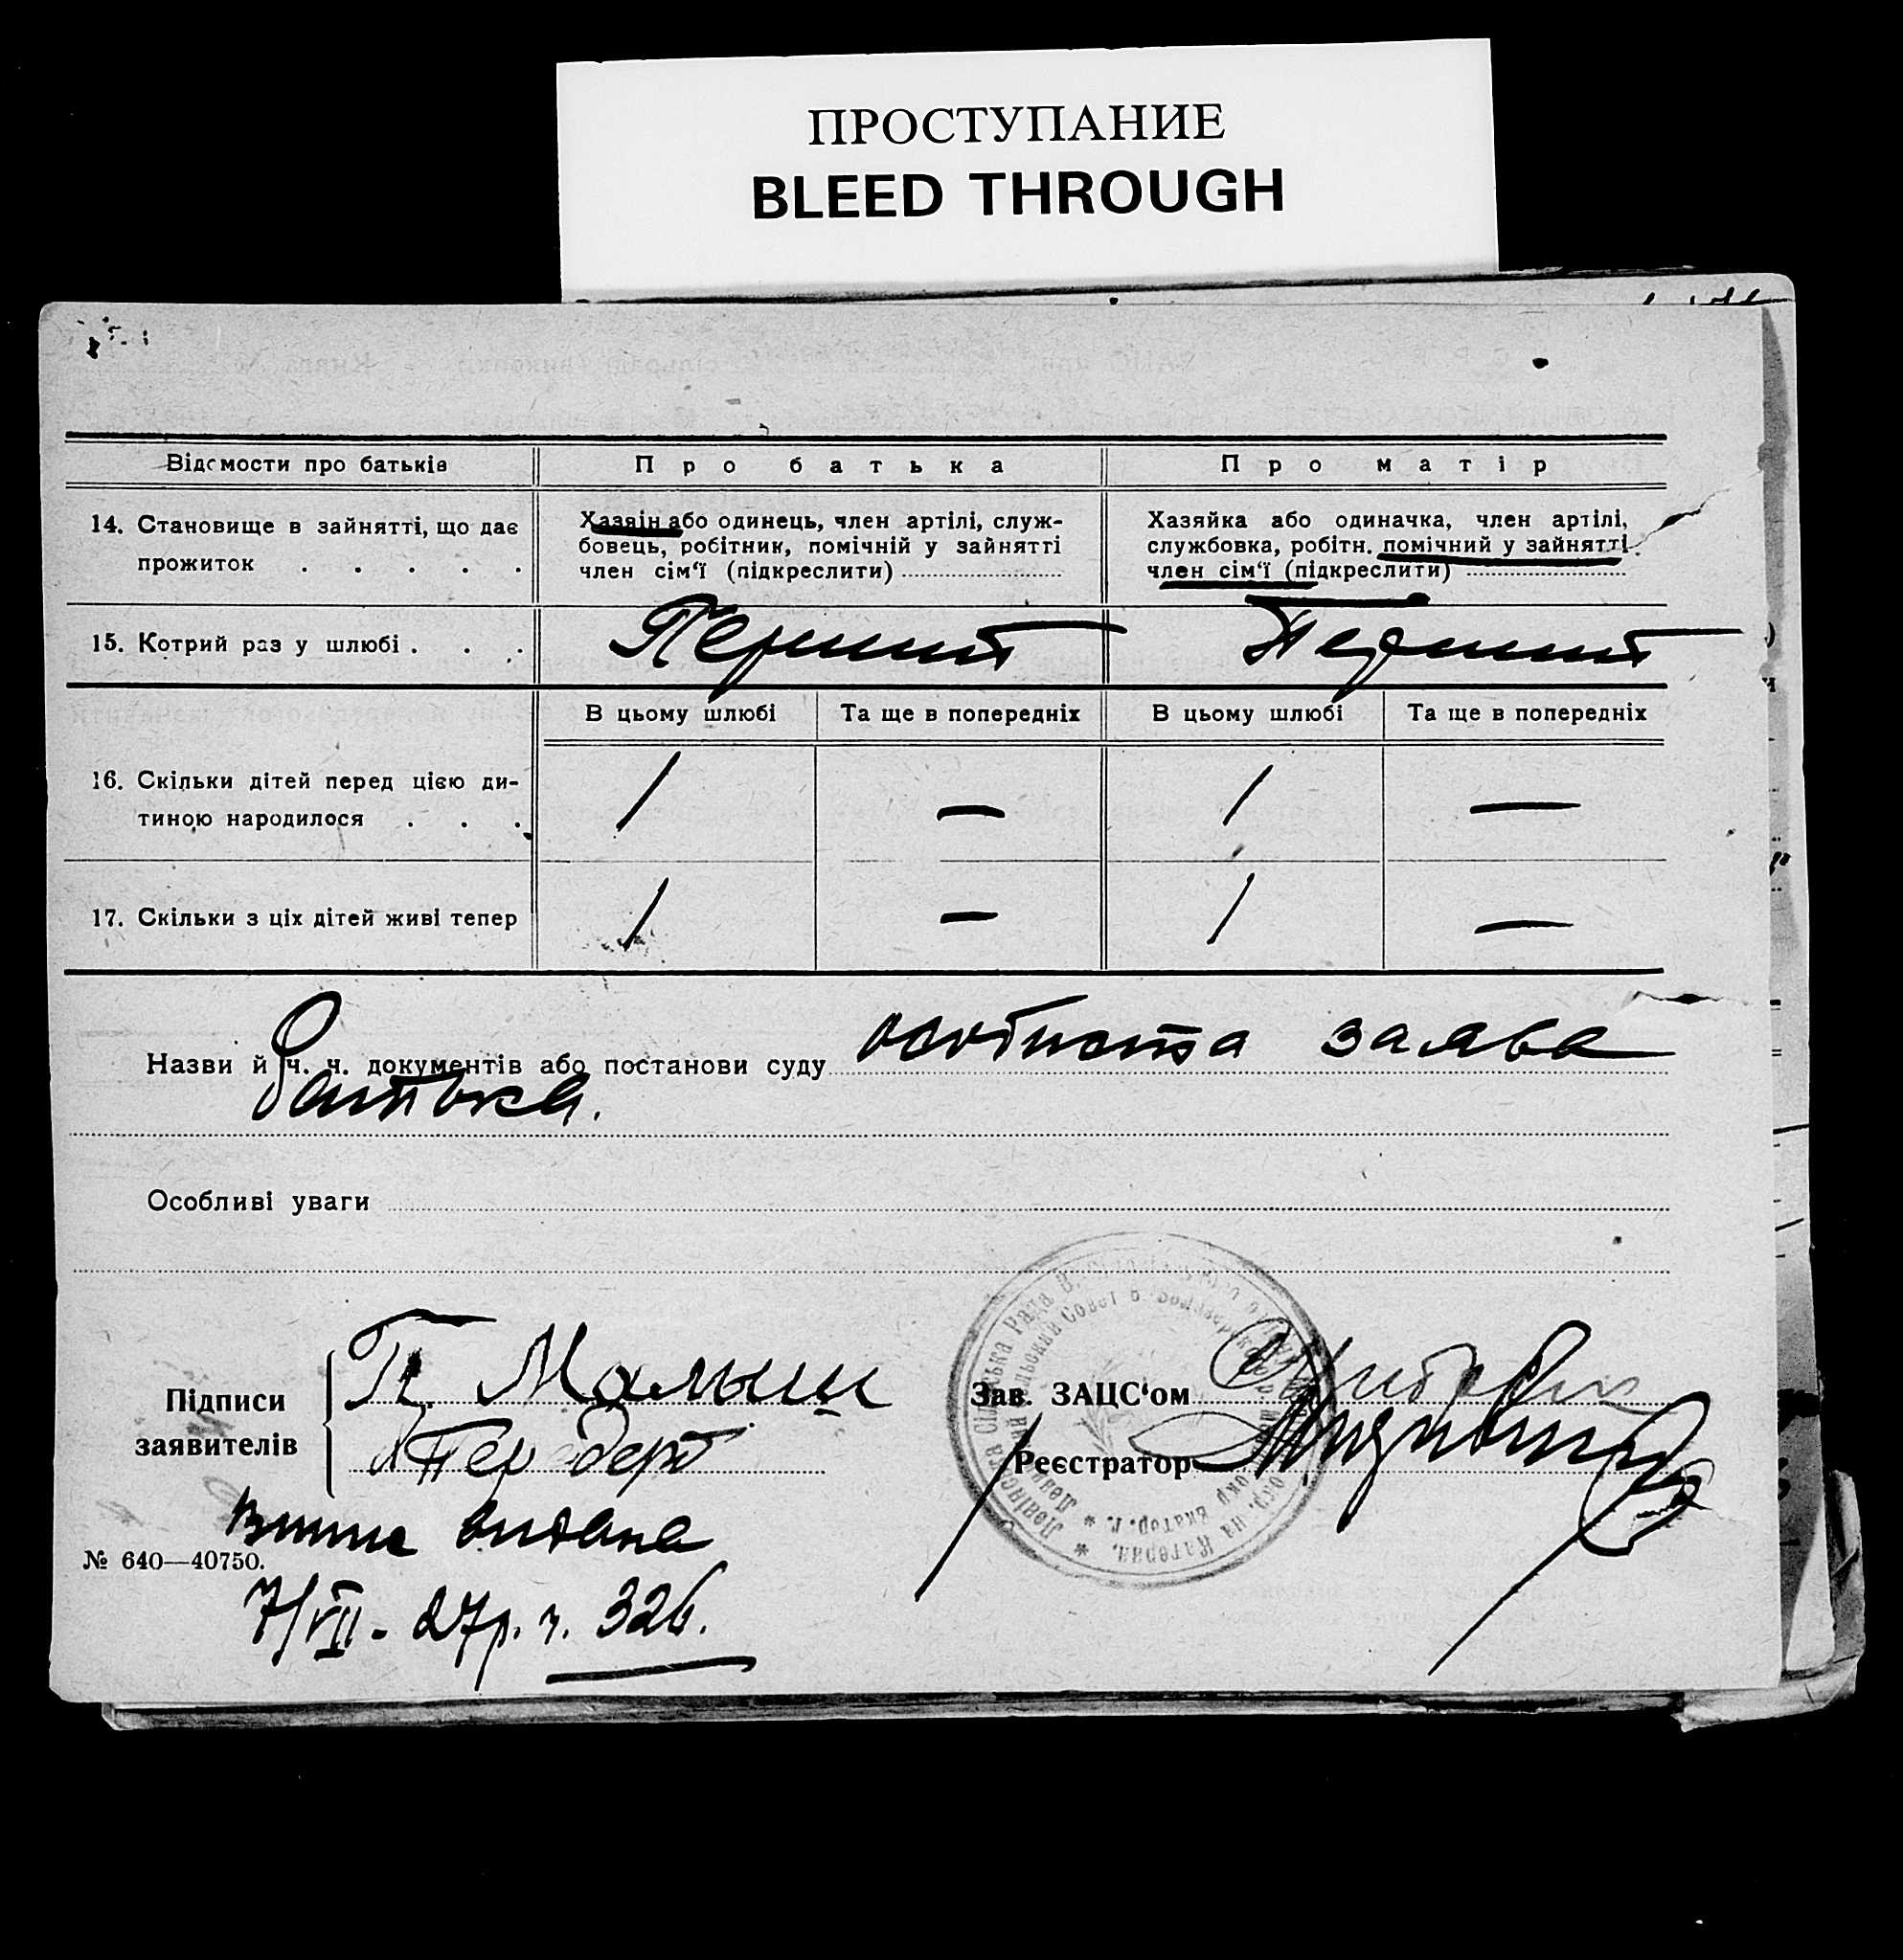 ПРОСТУПАНИЕ
BLEED THROUGH
Відомости про батьків
Про батька
Про матір
14. Становище в зайнятті, що дає
прожиток . . . . .
Хазяїн або одинець, член артілі, служ-
бовець, робітник, помічній у зайнятті
член сім‘ї (підкреслити)
Хазяйка або одиначка, член артілі,
службовка, робітн. помічний у зайнятті
член сім‘ї (підкреслити)
15. Котрий раз у шлюбі . . .
Перший
Перший
В цьому шлюбі
Та ще в попередніх
В цьому шлюбі
Та ще в попередніх
16. Скільки дітей перед цією ди-
тиною народилося . . .
/ — / —
17. Скільки з ціх дітей живі тепер
/ — / —
Назви й ч. ч. документів або постанови суду особиста заява
батька.
Особливі уваги
Підписи
заявителів
П. Малыш
Зав. ЗАЦС‘ом
Реєстратор
видана
№ 640—40750.
7/VII - 27р. ч. 326.